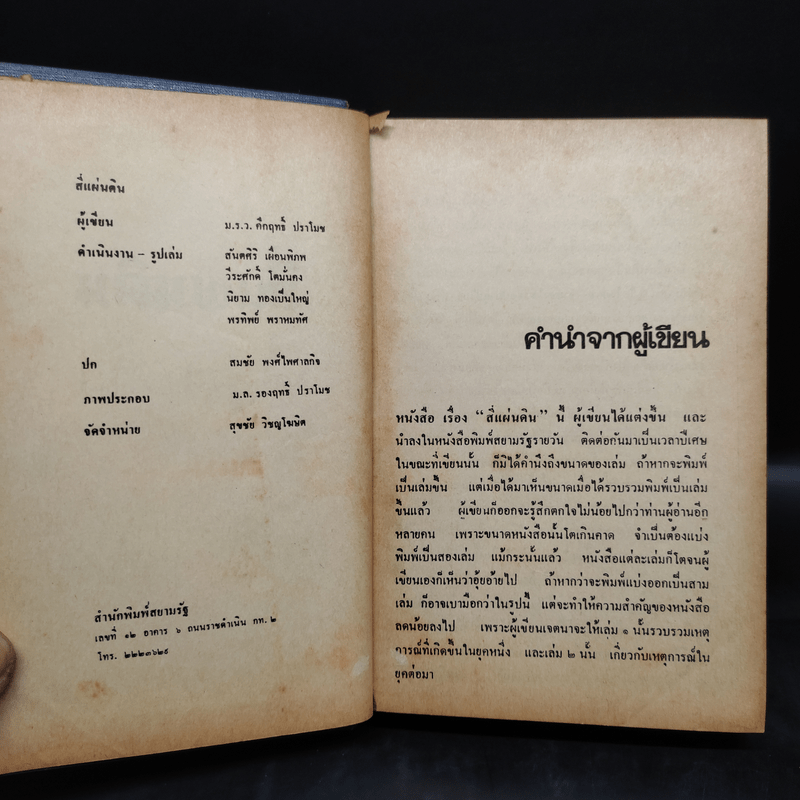 สี่แผ่นดิน
ผู้เขียน ม.ร.ว. คึกฤทธิ์ ปราโมช
ดำเนินงาน – รูปเล่ม สันตศิริ เผื่อนพิภพ
วีระศักดิ์ โตมั่นคง
นิยาม ทองเป็นใหญ่
พรทิพย์ พราหมทัศ
ปก สมชัย พงศ์ไพศาลกิจ
ภาพประกอบ ม.ล. รองฤทธิ์ ปราโมช
จัดจำหน่าย สุขชัย วิชญโฆษิต
สำนักพิมพ์สยามรัฐ
เลขที่ ๑๒ อาคาร ๖ ถนนราชดำเนิน กท. ๒
โทร. ๒๒๒๓๖๒๙
คำนำจากผู้เขียน
หนังสือ เรื่อง “สี่แผ่นดิน” นี้ ผู้เขียนได้แต่งขึ้น และ
นำลงในหนังสือพิมพ์สยามรัฐรายวัน ติดต่อกันมาเป็นเวลาปีเศษ
ในขณะที่เขียนนั้น ก็มิได้คำนึงถึงขนาดของเล่ม ถ้าหากจะพิมพ์
เป็นเล่มขึ้น แต่เมื่อได้มาเห็นขนาดเมื่อได้รวบรวมพิมพ์เป็นเล่ม
ขึ้นแล้ว ผู้เขียนก็ออกจะรู้สึกตกใจไม่น้อยไปกว่าท่านผู้อ่านอีก
หลายคน เพราะขนาดหนังสือนั้นโตเกินคาด จำเป็นต้องแบ่ง
พิมพ์เป็นสองเล่ม แม้กระนั้นแล้ว หนังสือแต่ละเล่มก็โตจนผู้
เขียนเองก็เห็นว่าอุ้ยอ้ายไป ถ้าหากว่าจะพิมพ์แบ่งออกเป็นสาม
เล่ม ก็อาจเบามือกว่าในรูปนี้ แต่จะทำให้ความสำคัญของหนังสือ
ลดน้อยลงไป เพราะผู้เขียนเจตนาจะให้เล่ม ๑ นั้นรวบรวมเหตุ
การณ์ที่เกิดขึ้นในยุคหนึ่ง และเล่ม ๒ นั้น เกี่ยวกับเหตุการณ์ใน
ยุคต่อมา